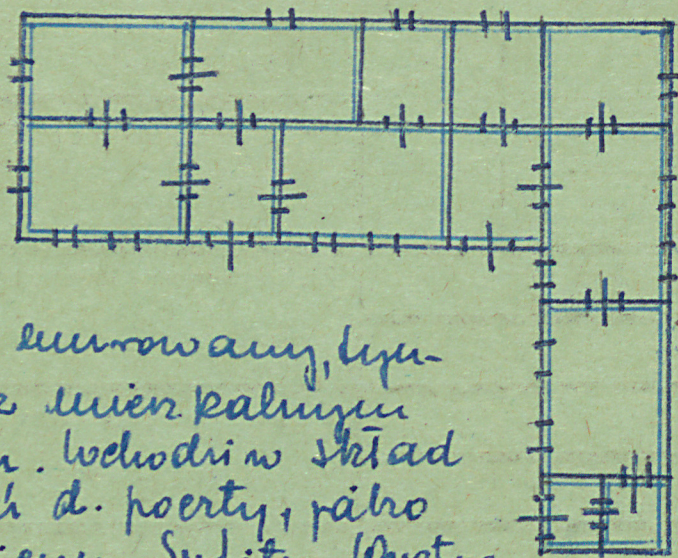 murowany, tyn-
z mieszkalnym
. Wchodzi w skład
d. poczty, jako